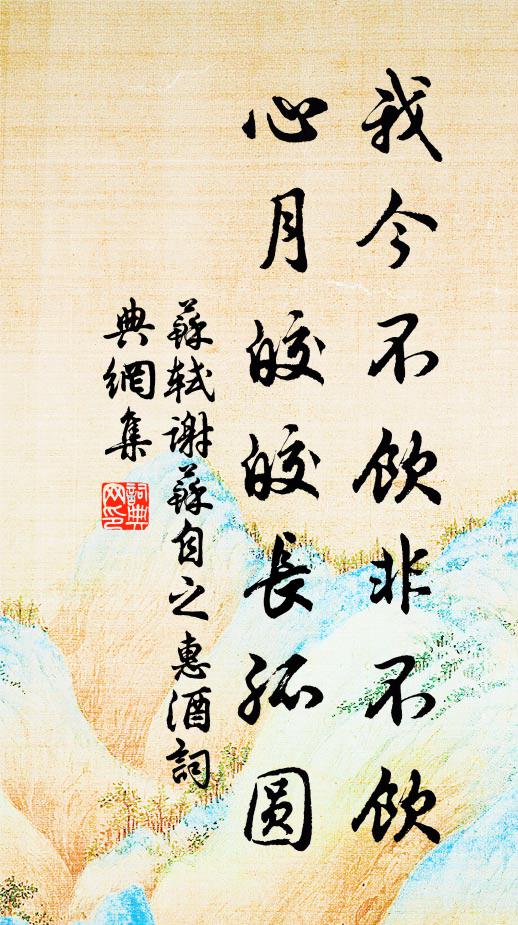 我今不飲非不飲
心月皎皎長孤圓
蘇軾謝蘇自之惠酒詞
典網集
詞典
网印